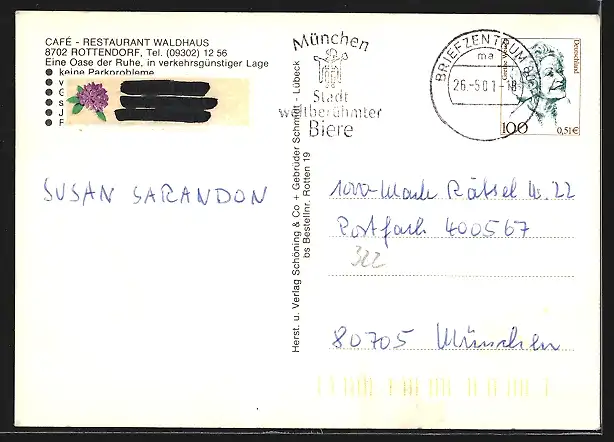 CAFÉ - RESTAURANT WALDHAUS
8702 ROTTENDORF, Tel. (09302) 12 56
Eine Oase der Ruhe, in verkehrsgünstiger Lage
● keine Parkprobleme
SUSAN SARANDON
Herst. u. Verlag Schöning & Co + Gebrüder Schmidt - Lübeck
bs Bestellnr. Rotten 19
München
Stadt
weltberühmter
Biere
BRIEFZENTRUM
ma
26.-5.01-18
Deutschland
100
0,51€
1000-Mark Rätsel Nr. 22
Postfach 400567
322
80705 München